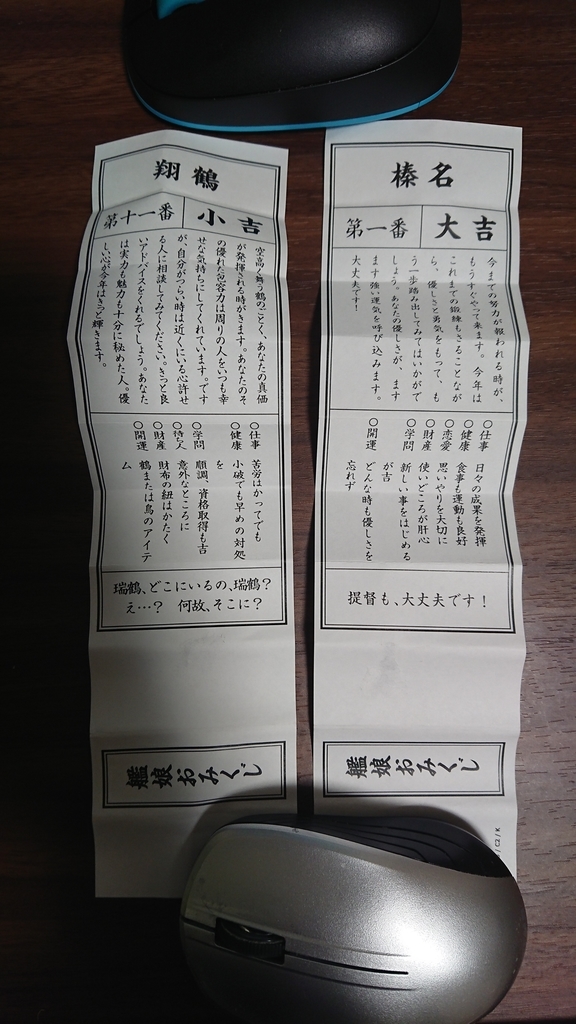 榛名
第一番
大吉
今までの努力が報われる時が、
もうすぐやって来ます。今年は
これまでの鍛練もさることなが
ら、優しさと勇気をもって、も
う一歩踏み出してみてはいかがで
しょう。あなたの優しさが、ます
ます強い運気を呼び込みます。
大丈夫です!
○仕事 日々の成果を発揮
○健康 食事も運動も良好
○恋愛 思いやりを大切に
○財産 使いどころが肝心
○学問 新しい事をはじめる
が吉
○開運 どんな時も優しさを
忘れず
提督も、大丈夫です!
艦娘おみくじ
/ C2 / K
翔鶴
第十一番
小吉
空高く舞う鶴のごとく、あなたの真価
が発揮される時がきます。あなたのそ
の優れた包容力は周りの人をいつも幸
せな気持ちにしてくれています。です
が、自分がつらい時は近くにいる心許せ
る人に相談してみてください。きっと良
いアドバイスをくれるでしょう。あなた
は実力も魅力も十分に秘めた人。優
しい心が今年はきっと輝きます。
○仕事 苦労はかってでも
○健康 小破でも早めの対処
を
○学問 順調、資格取得も吉
○待人 意外なところに
○財産 財布の紐はかたく
○開運 鶴または鳥のアイテ
ム
瑞鶴、どこにいるの、瑞鶴?
え…? 何故、そこに?
艦娘おみくじ